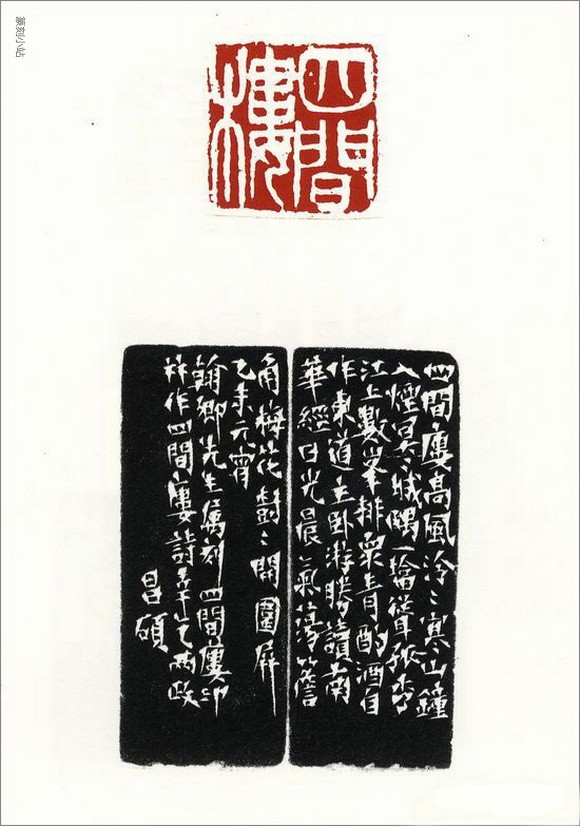 篆刻小站
四間
樓
四間廔高風泠〻寒山鐘
入煙冥〻城隅一塔聳孤
江上數峯排眾青酌酒自
作東道主臥游勝讀南
華經日光晨氣蕩簷
角梅花樹〻開屏
乙未元宵
翰卿先生屬刻四間廔印
并作四間廔詩幸乞兩政
昌碩